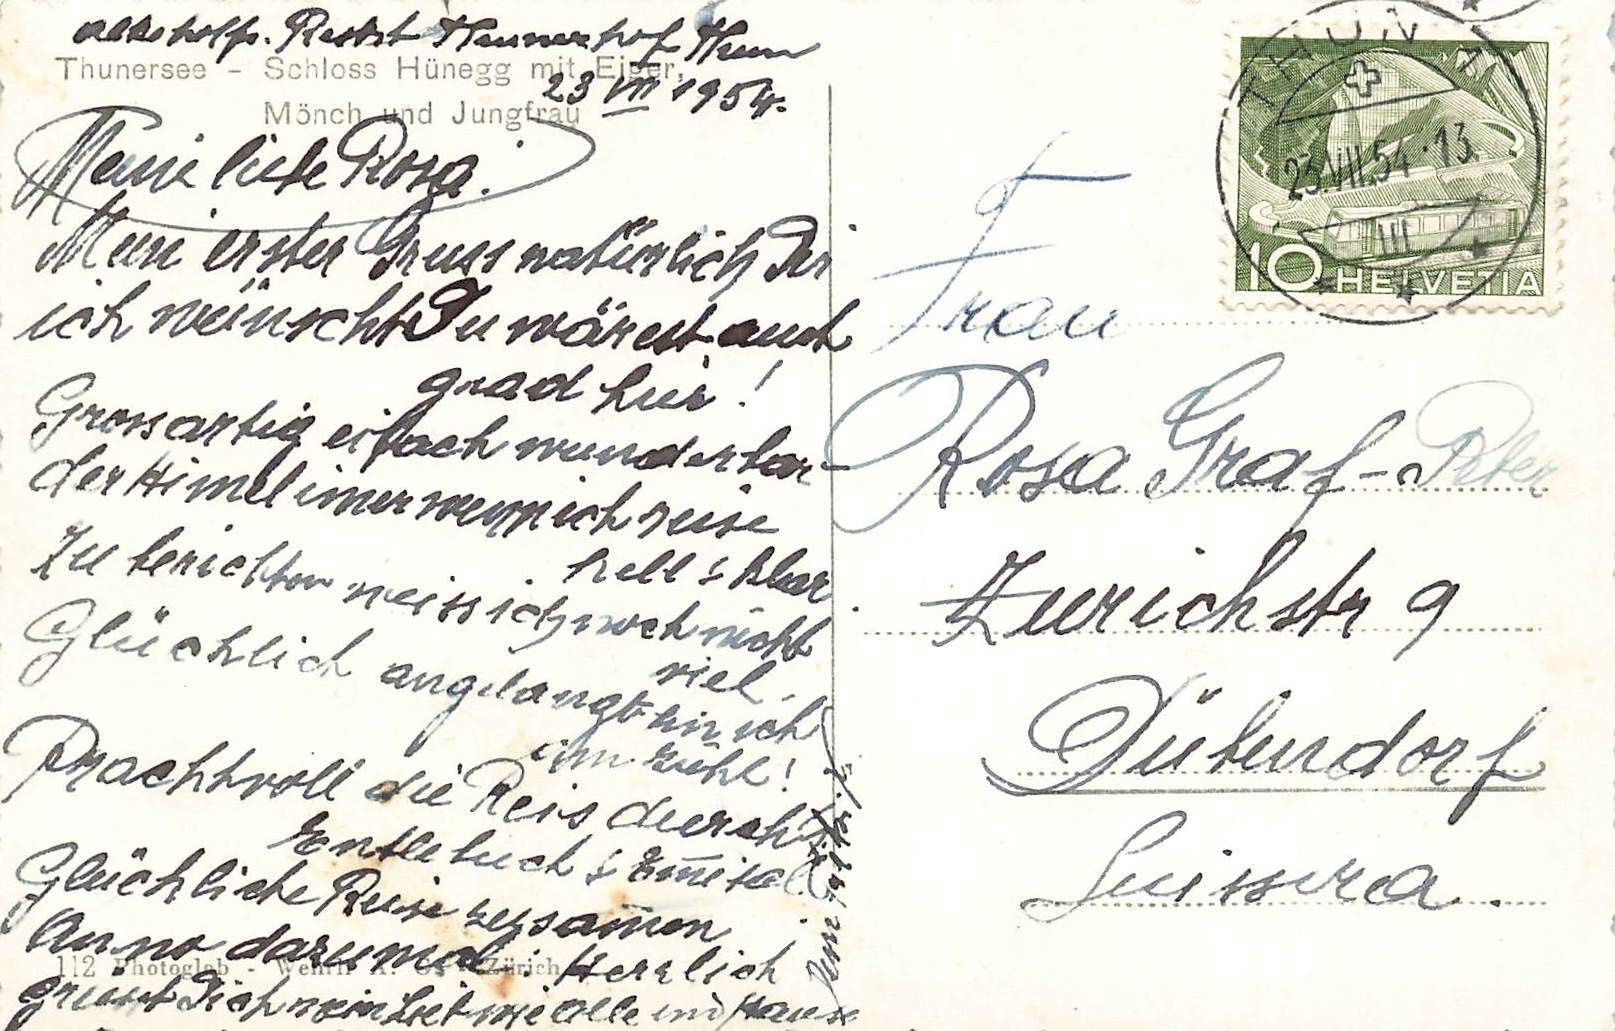 alkoholfr. Restrt Thunerhof Thun
Thunersee - Schloss Hünegg mit Eiger,
Mönch und Jungfrau
23 VII 1954.
Meine liebe Rosa.
Mein erster Gruss natürlich Dir
ich wünscht Du wärest auch
grad hier!
Grossartig eifach wunderbar
der Himel imer wenn ich reise
hell & klar.
Zu berichten weiss ich noch nicht
viel.
Glücklich angelangt bin ich
im
Prachtvoll die Reis durch
Entlebuch & Em̄ital
Glückliche Reise zusam̄en
Anno dazumal. Herzlich
112 Photoglob - Wehrli A. G. Zürich
grüsst Dich wie alle im Hause
Deine
THUN 1
23.VII.54.13
III
10 HELVETIA
Frau
Rosa Graf-Peter
Zurichstr 9
Dübendorf
Suissera.